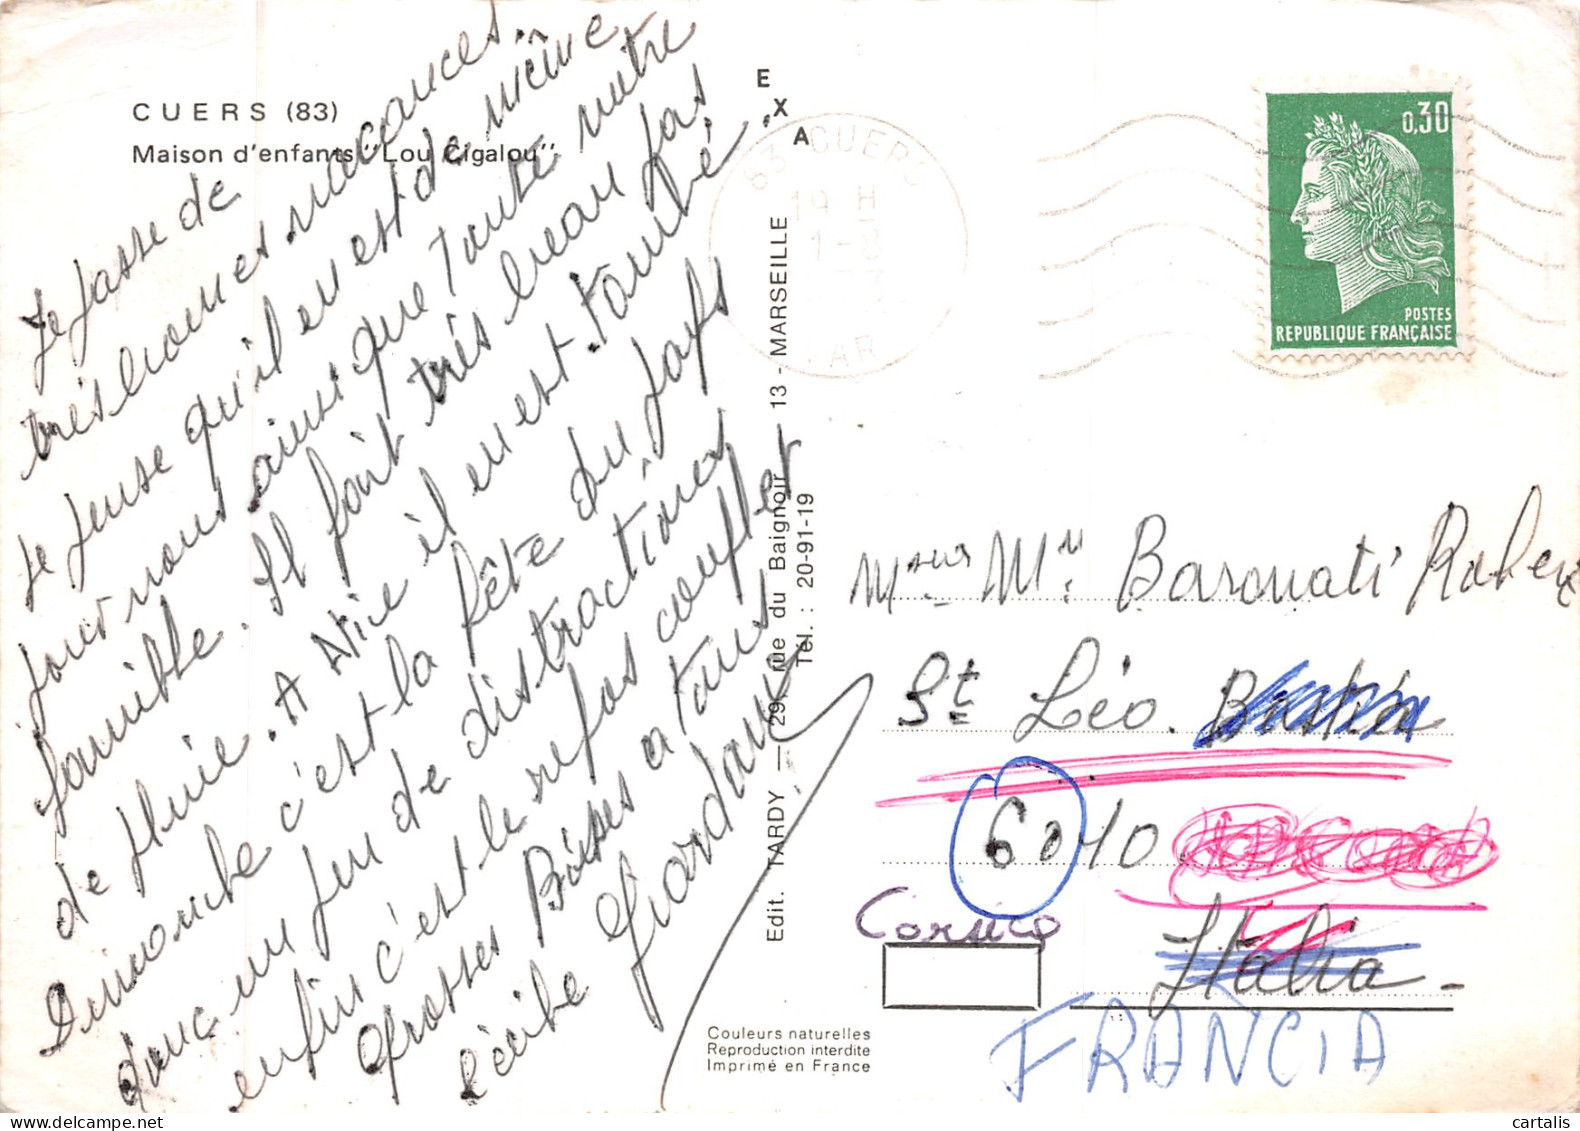 CUERS (83)
Maison d'enfants "Lou Cigalou"
EXA
Je passe de
très bonnes vacances.
Je pense qu'il en est de même
pour vous ainsi que toute votre
famille. Il fait très beau pas
de pluie. A Nice il en est tombé.
Dimanche c'est la fête du pays
donc un peu de distractions
enfin c'est le repos complet
Grosses Bises a tous
Giordane
Edit. TARDY — 29, rue du Baignoir 13 - MARSEILLE
Tél. : 20-91-19
Couleurs naturelles
Reproduction interdite
Imprimé en France
83 CUERS
19 H
VAR
0,30
POSTES
REPUBLIQUE FRANÇAISE
Baronati
St Léo. Bastia
6010
Corsica
Italia -
FRANCIA
cartalis